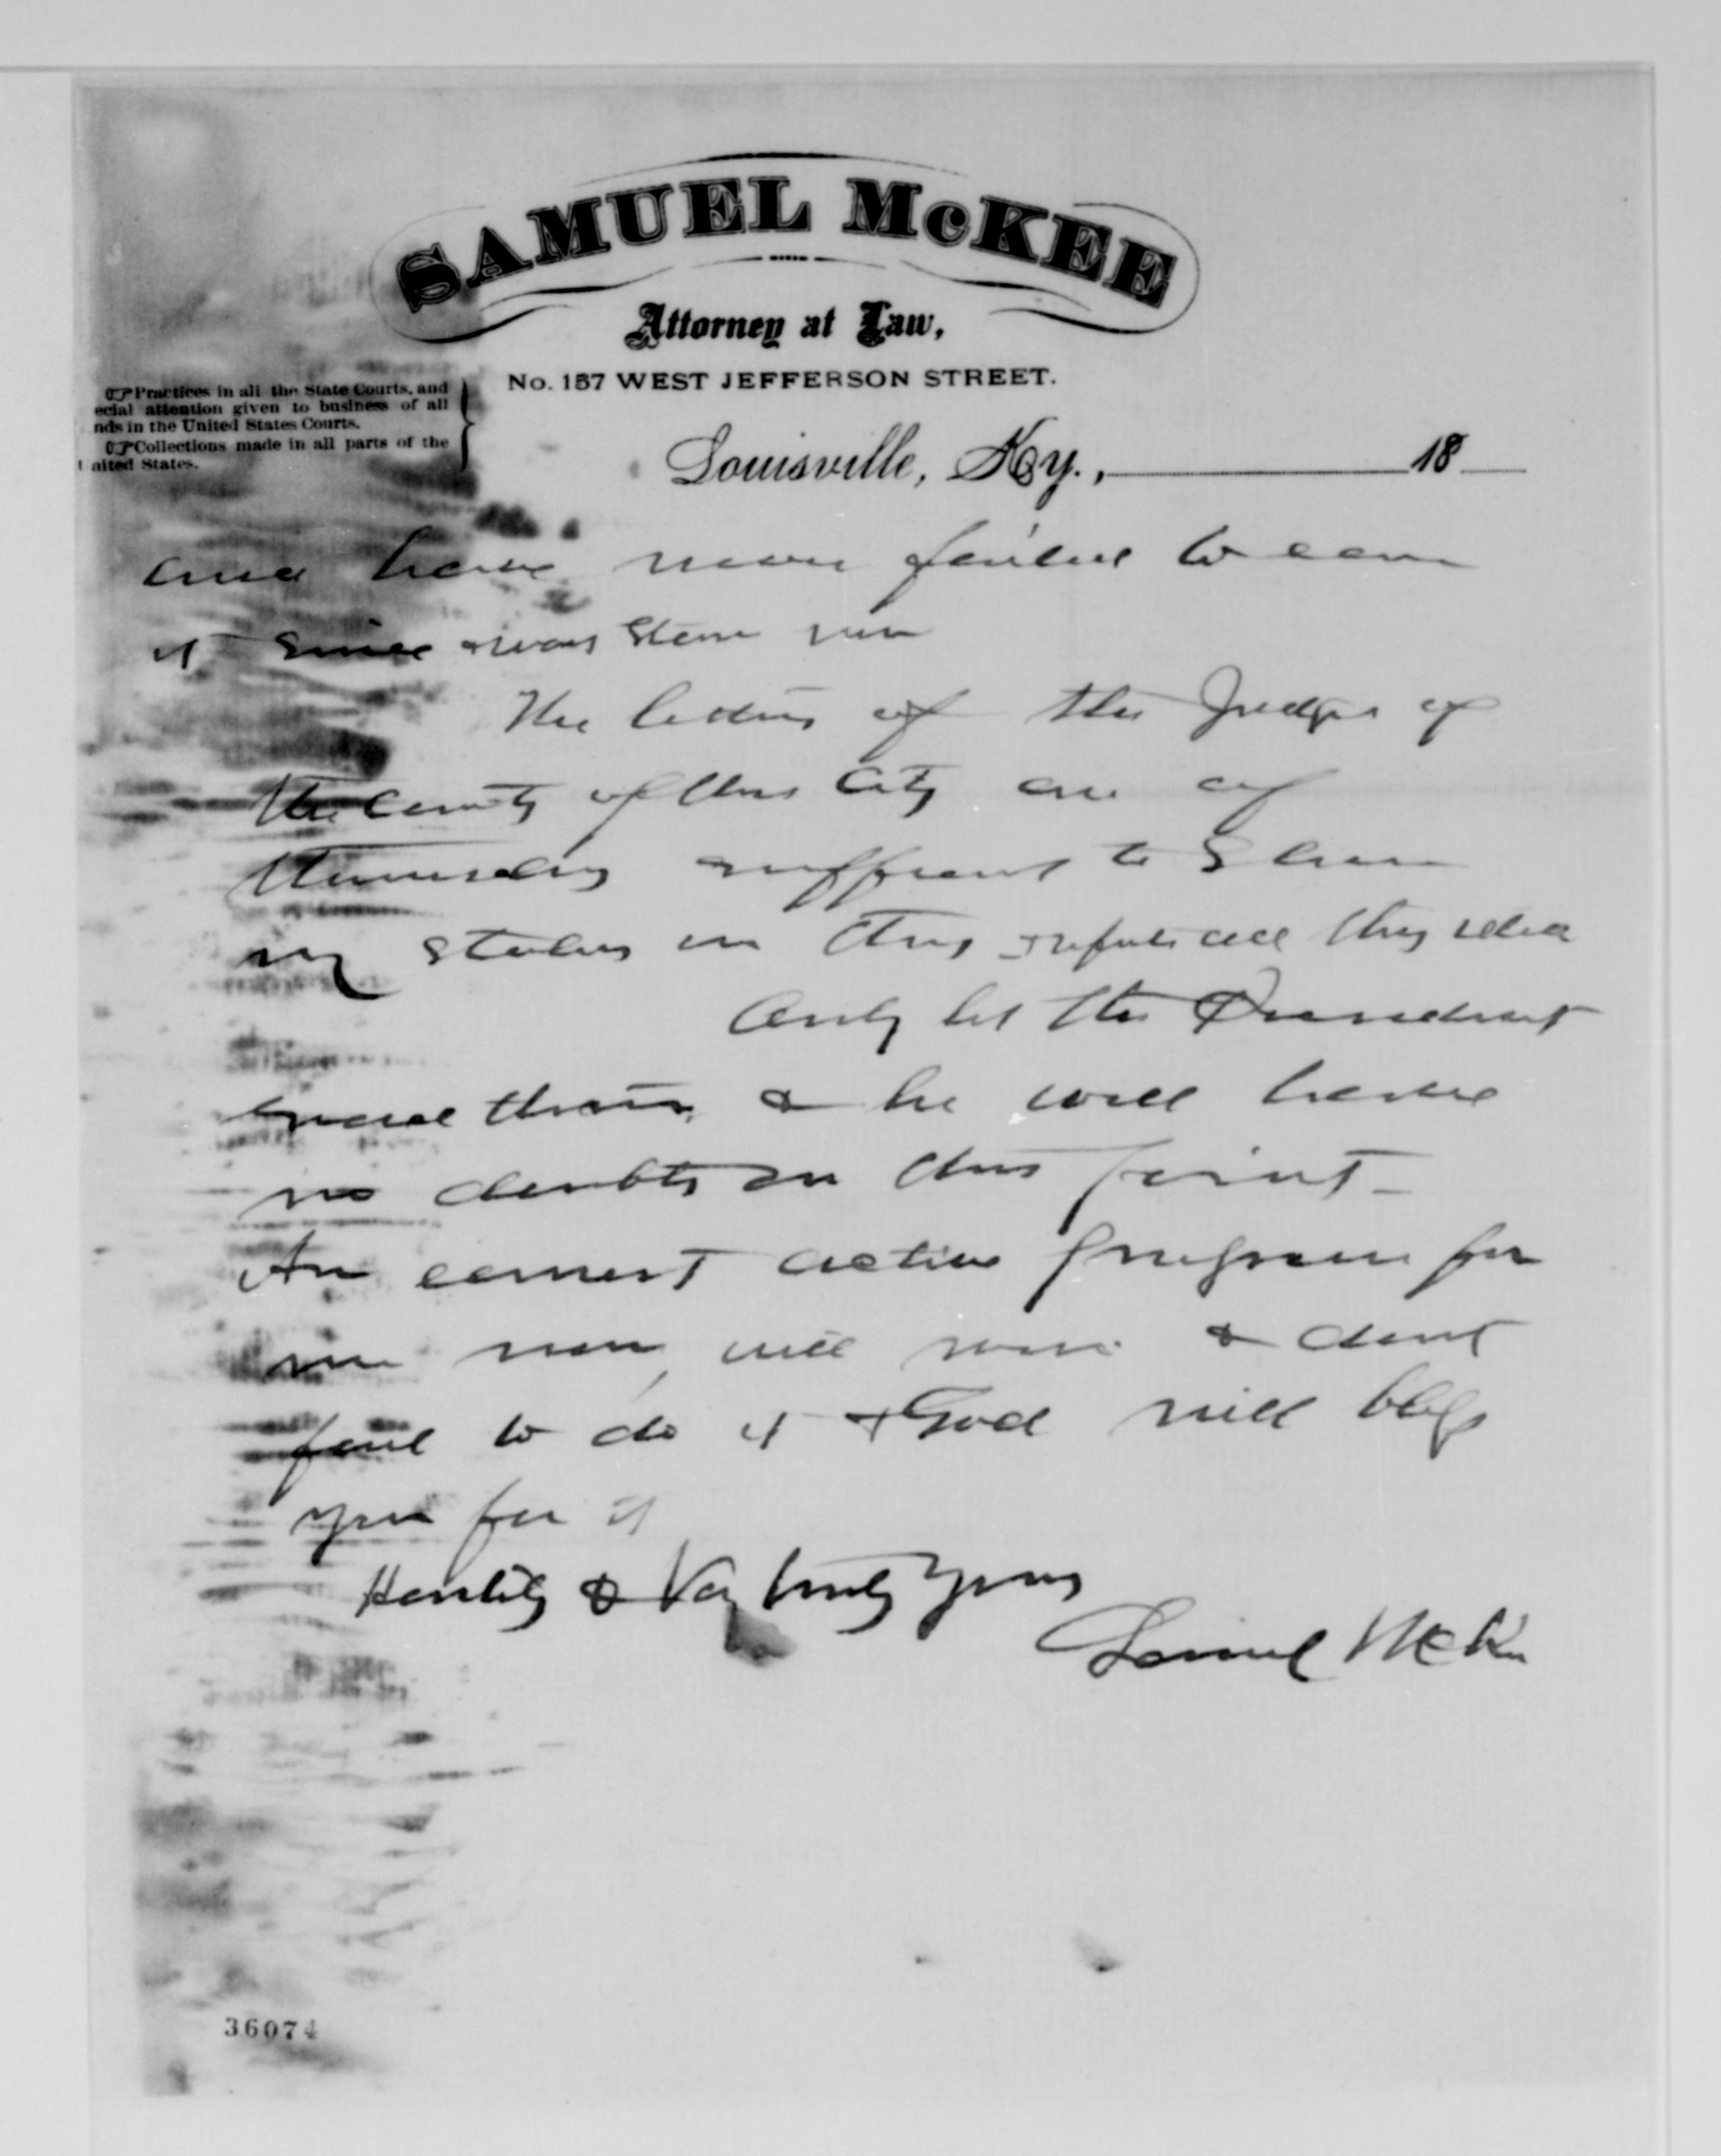 SAMUEL McKEE
Attorney at Law,
No. 157 WEST JEFFERSON STREET.
Practices in all the State Courts, and
ecial attention given to business of all
nds in the United States Courts.
Collections made in all parts of the
United States.
Louisville, Ky., 18
and have never failed to earn
it since
The letters of the Judges of
the Courts of this City are of
themselves sufficient to show
my status in this & refute all this idea
Only let the President
read them & he will have
no doubts on this point -
An earnest active for
me now will & dont
fail to do it & God will bless
you for it
Heartily & Very truly Yours
Samuel McKee
36074